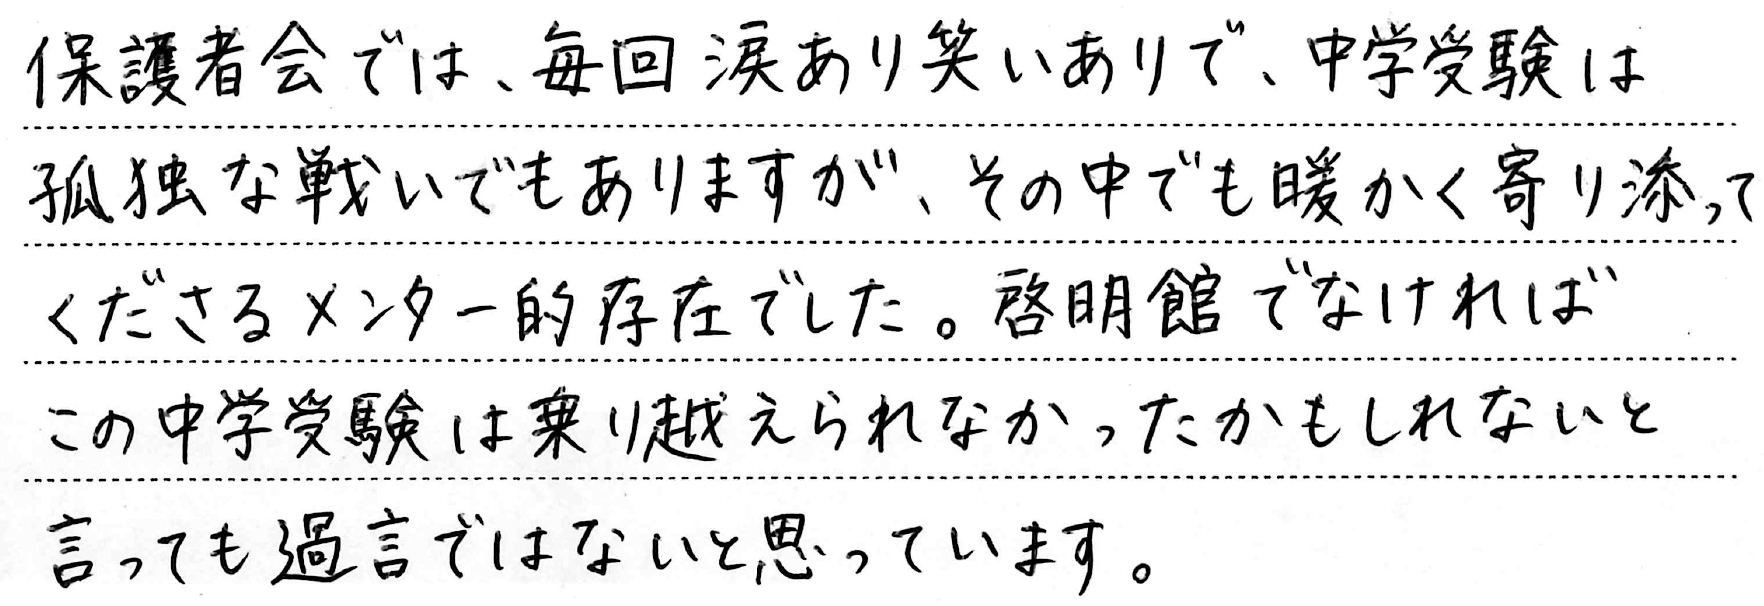 保護者会では、毎回涙あり笑いありで、中学受験は
孤独な戦いでもありますが、その中でも暖かく寄り添って
くださるメンター的存在でした。啓明館でなければ
この中学受験は乗り越えられなかったかもしれないと
言っても過言ではないと思っています。